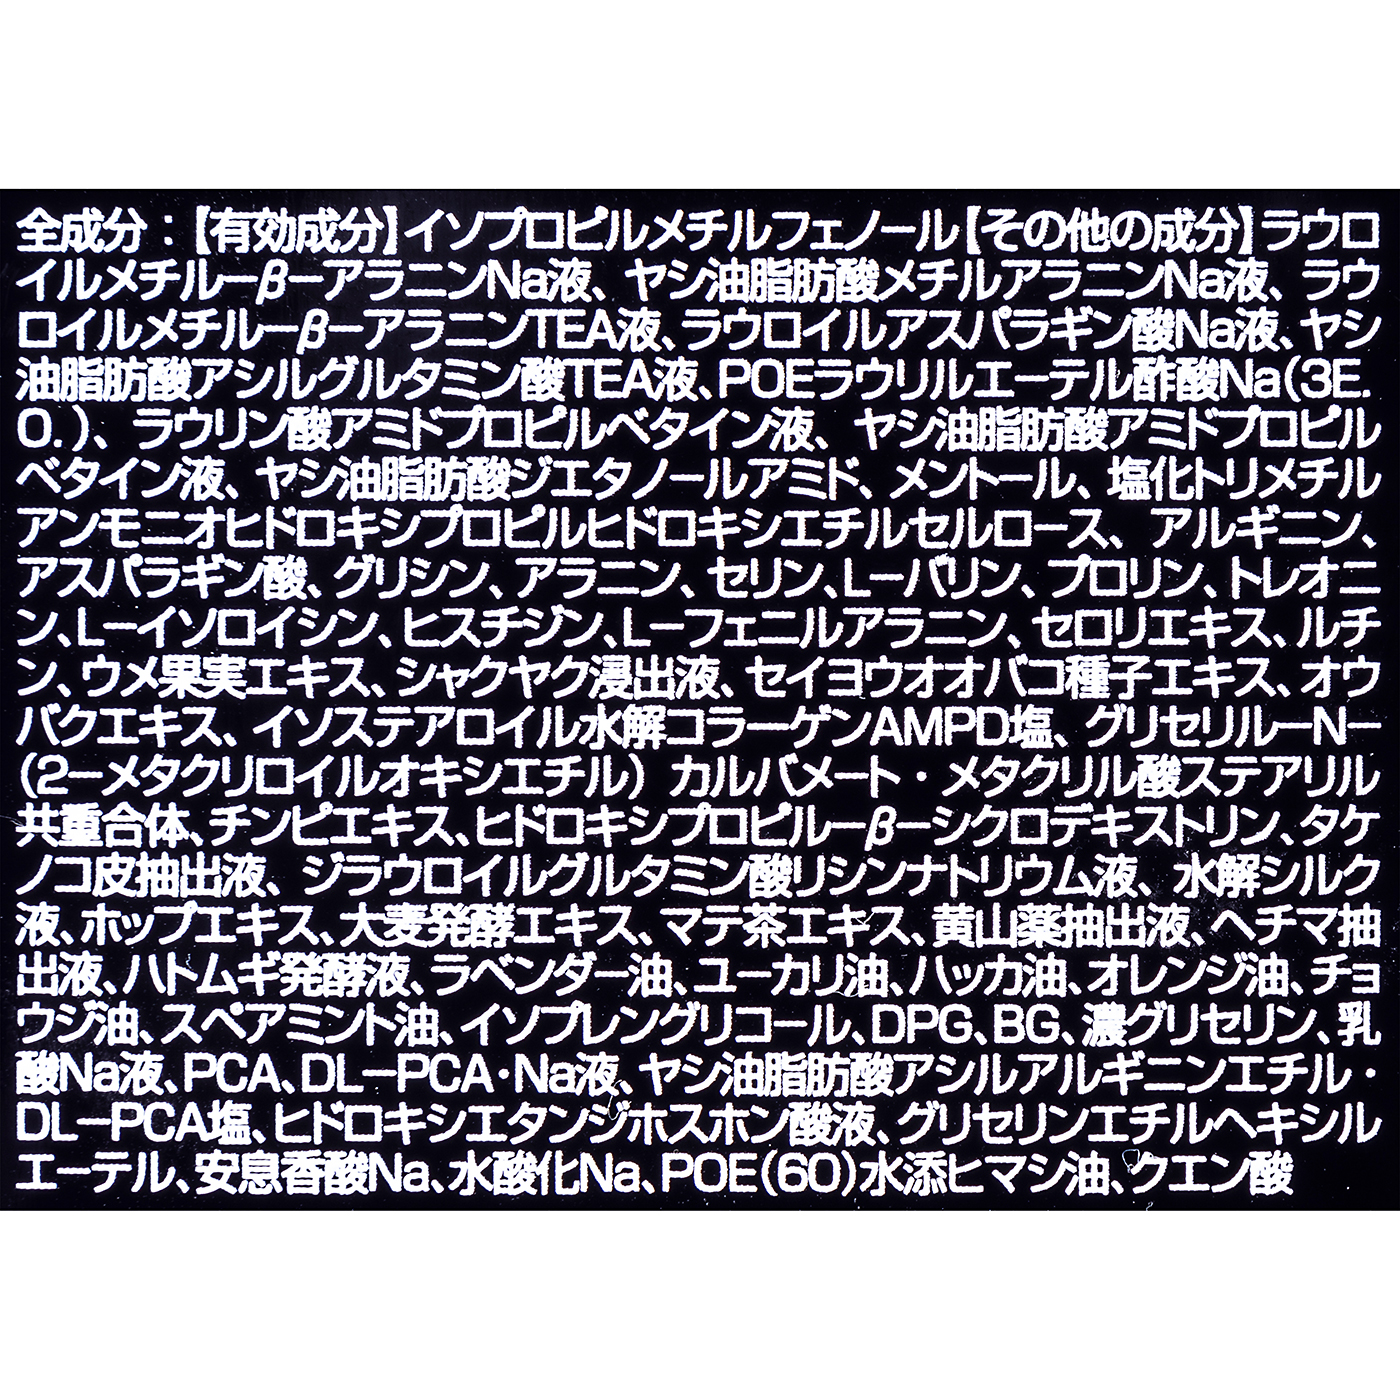 全成分：【有効成分】イソプロピルメチルフェノール【その他の成分】ラウロ
イルメチル－β－アラニンNa液、ヤシ油脂肪酸メチルアラニンNa液、ラウ
ロイルメチル－β－アラニンTEA液、ラウロイルアスパラギン酸Na液、ヤシ
油脂肪酸アシルグルタミン酸TEA液、POEラウリルエーテル酢酸Na(3E.
O.)、ラウリン酸アミドプロピルベタイン液、ヤシ油脂肪酸アミドプロピル
ベタイン液、ヤシ油脂肪酸ジエタノールアミド、メントール、塩化トリメチル
アンモニオヒドロキシプロピルヒドロキシエチルセルロース、アルギニン、
アスパラギン酸、グリシン、アラニン、セリン、L－バリン、プロリン、トレオニ
ン、L－イソロイシン、ヒスチジン、L－フェニルアラニン、セロリエキス、ルチ
ン、ウメ果実エキス、シャクヤク浸出液、セイヨウオオバコ種子エキス、オウ
バクエキス、イソステアロイル水解コラーゲンAMPD塩、グリセリル－N－
(2－メタクリロイルオキシエチル)カルバメート・メタクリル酸ステアリル
共重合体、チンピエキス、ヒドロキシプロピル－β－シクロデキストリン、タケ
ノコ皮抽出液、ジラウロイルグルタミン酸リシンナトリウム液、水解シルク
液、ホップエキス、大麦発酵エキス、マテ茶エキス、黄山薬抽出液、ヘチマ抽
出液、ハトムギ発酵液、ラベンダー油、ユーカリ油、ハッカ油、オレンジ油、チョ
ウジ油、スペアミント油、イソプレングリコール、DPG、BG、濃グリセリン、乳
酸Na液、PCA、DL－PCA・Na液、ヤシ油脂肪酸アシルアルギニンエチル・
DL－PCA塩、ヒドロキシエタンジホスホン酸液、グリセリンエチルヘキシル
エーテル、安息香酸Na、水酸化Na、POE(60)水添ヒマシ油、クエン酸